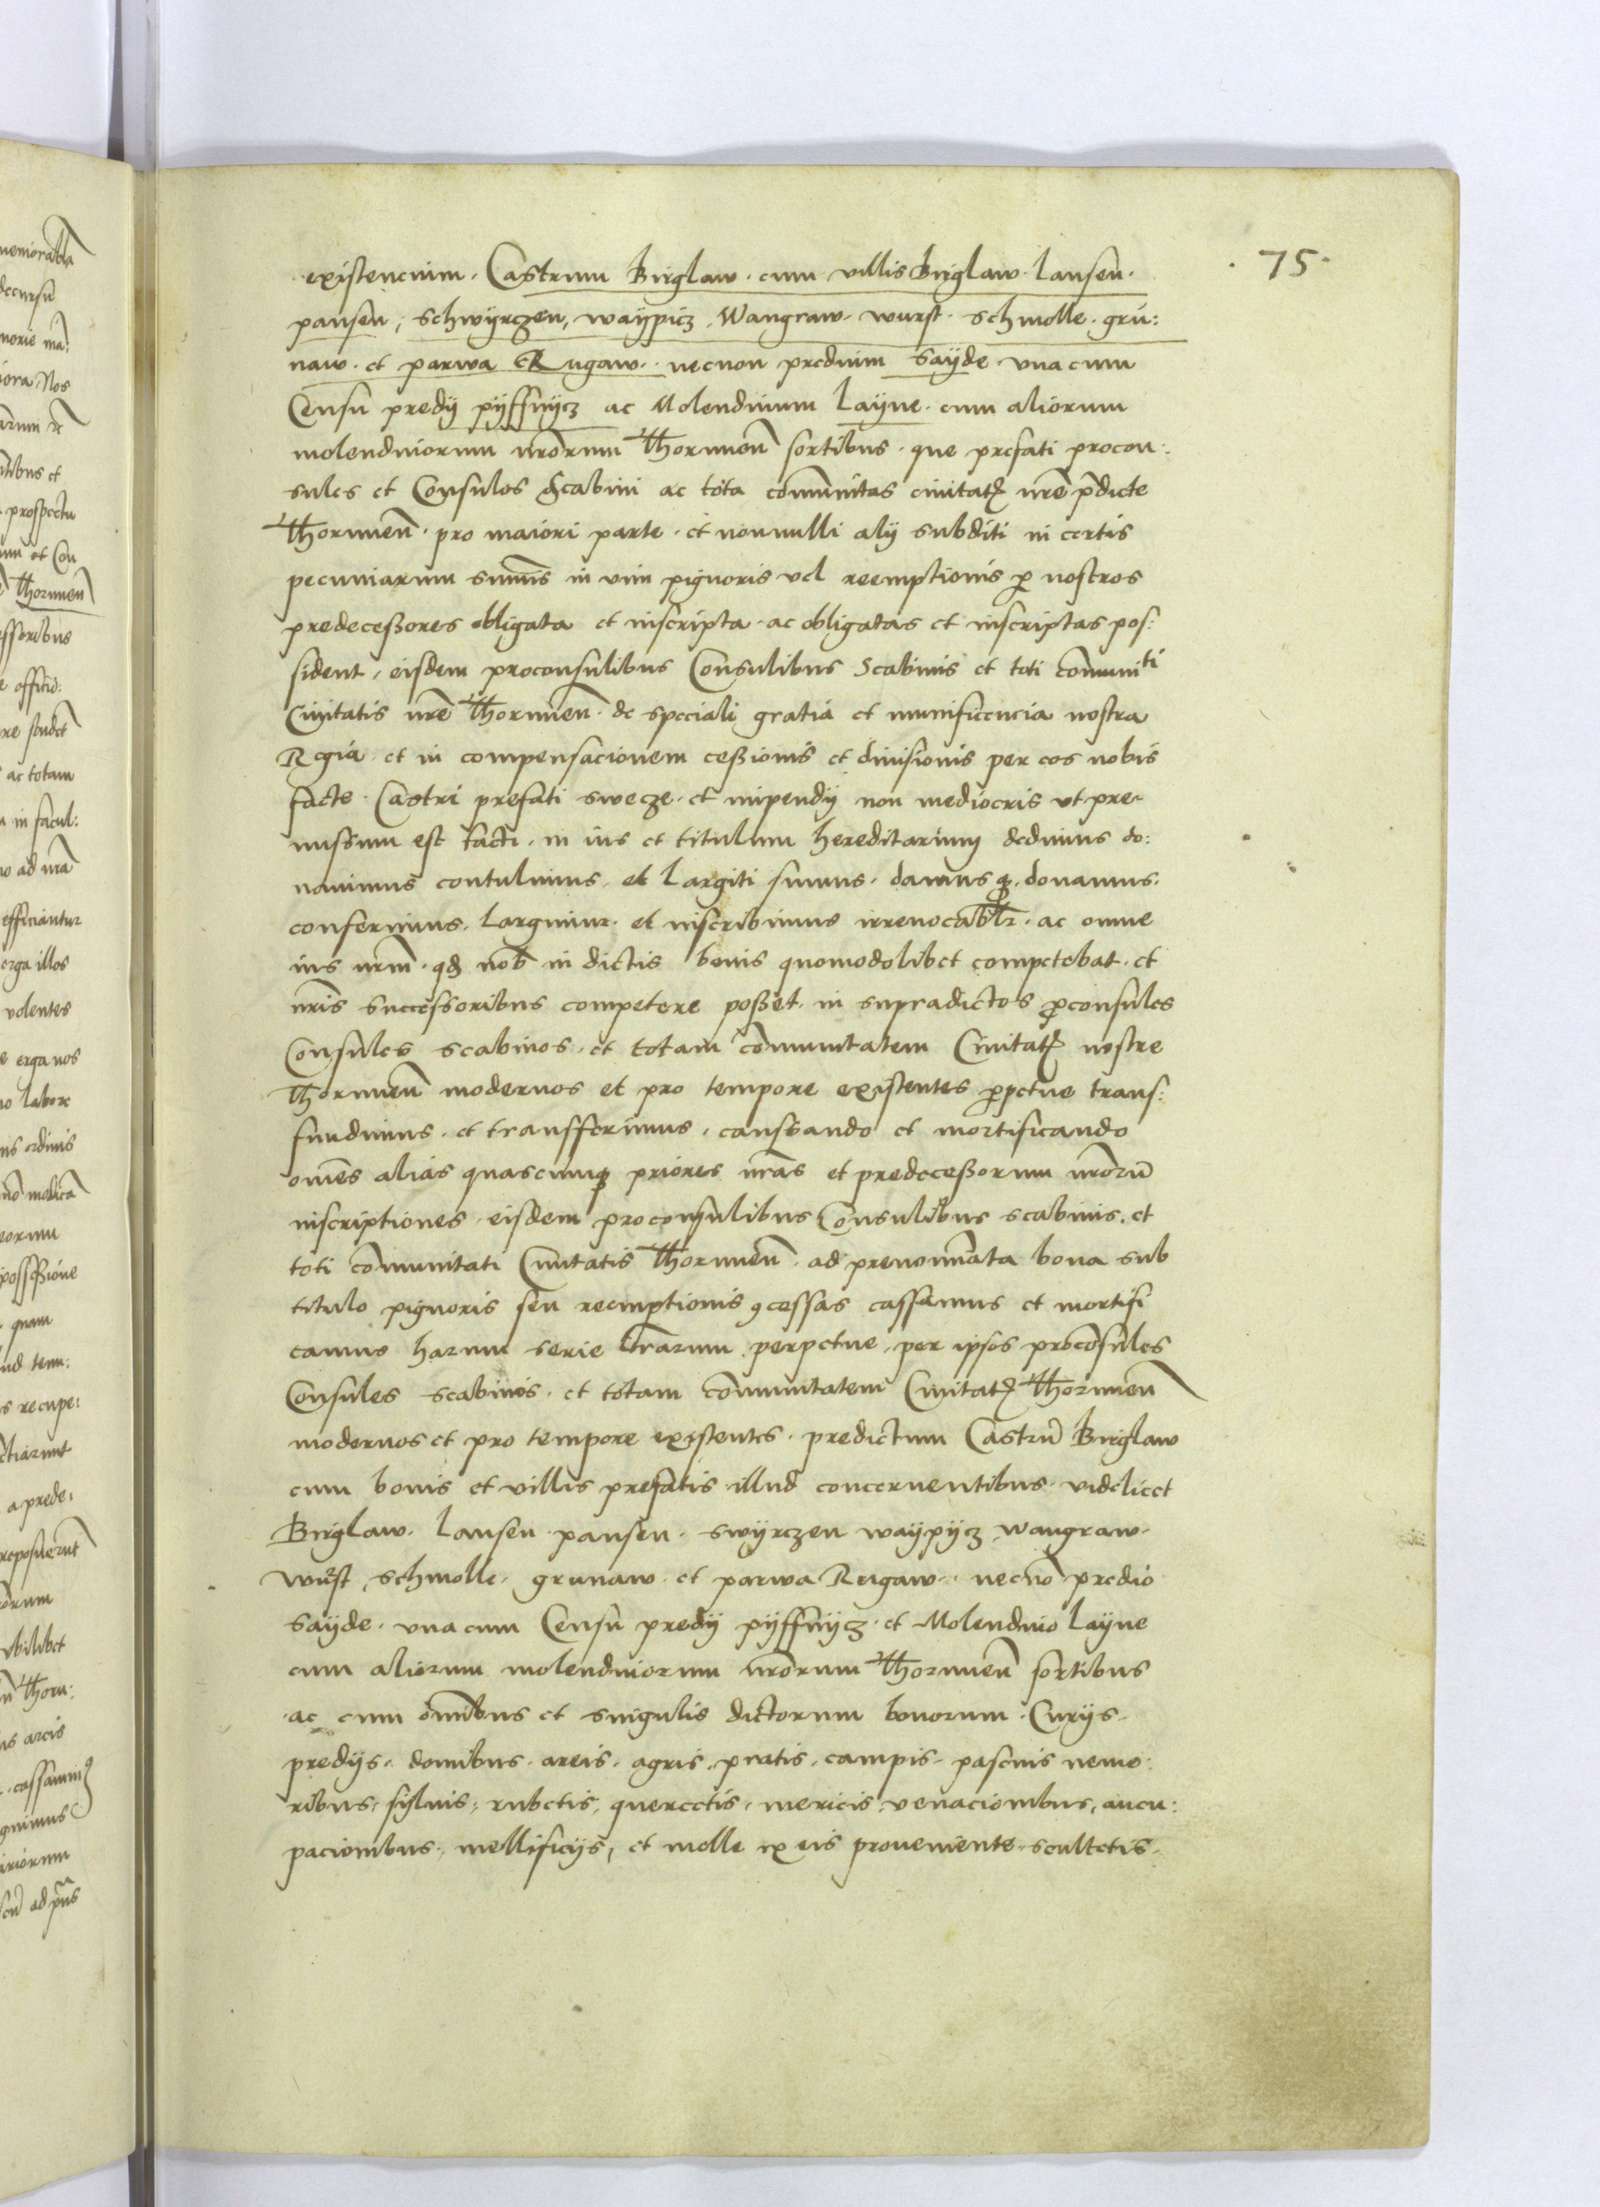 75
existencium. Castrum Birglaw. cum villis Birglaw. Lansen.
pansen, schwyrczen, waypicz. Wangraw. wurst. schmolle. gru:
naw. et parwa Rugaw. necnon predium sayde. vna cum
Censu predy pyffnycz ac Molendinum Layne. cum aliorum
molendinorum nrōrum Thorunen̄ sortibus. que prefati procon:
sules et Consules Scabini ac tota com̄unitas ciuitatꝭ nrē p̄dicte
Thorunen̄. pro maiori parte. et nonnulli alij subditi in certis
pecuniarum sum̄is in vim pignoris vel reemptionis ꝑ nostros
predecessores obligata et inscripta. ac obligatas et inscriptas pos:
sident, eisdem proconsulibus Consulibus Scabinis et toti com̄uniti
Ciuitatis nrē Thorunen̄. de speciali gratia et munificencia nostra
Regia. et in compensacionem cessionis et diuisionis per eos nobis
facte. Castri prefati swecze. et impendij non mediocris vt pre-
missum est facti. in ius et titulum hereditarium dedimus do:
nauimus contulimus. et Largiti sumus. damusqꝫ. donamus.
conferimus. Largimur. et inscribimus irreuocabl̄r. ac omne
ius nr̄m. qđ nob̄ in dictis bonis quomodolibet competebat. et
nr̄is successoribus competere posset. in supradictos ꝓconsules
Consules scabinos. et totam com̄unitatem Ciuitatꝭ nostre
Thorunen̄ modernos et pro tempore existentes ꝑpetue trans:
fundimus. et transfferimus. cassando et mortificando
om̄es alias quascumqꝫ priores nrās et predecessorum nrōrū
inscriptiones. eisdem proconsulibus Consulibus scabinis. et
toti com̄unitati Ciuitatis Thorunen̄. ad prenomīata bona sub
titulo pignoris seu reemptionis ꝯcessas cassamus et mortifi
camus harum serie lrārum. perpetue. per ipsos procōsules
Consules scabinos. et totam com̄unitatem Ciuitatꝭ Thorunen̄
modernos et pro tempore existentes. predictum Castrū Birglaw
cum bonis et villis prefatis. illud concernentibus. videlicet
Birglaw. Lansen. pansen. swyrczen waypycz wangraw.
wurst, schmolle. grunaw. et parwa Rugaw. necnō predio
sayde. vna cum Censu predy pyffnycz. et Molendino Layne
cum aliorum molendinorum nrōrum Thorunen̄ sortibus
ac cum om̄ibus et singulis dictorum bonorum. Curijs.
predijs. domibus. areis. agris. pratis. campis. pascuis nemo:
ribus, syluis, rubetis, quercetis, mericis, venacionibus, aucu:
pacionibus, mellificijs, et melle ex eis proueniente. scultetis.